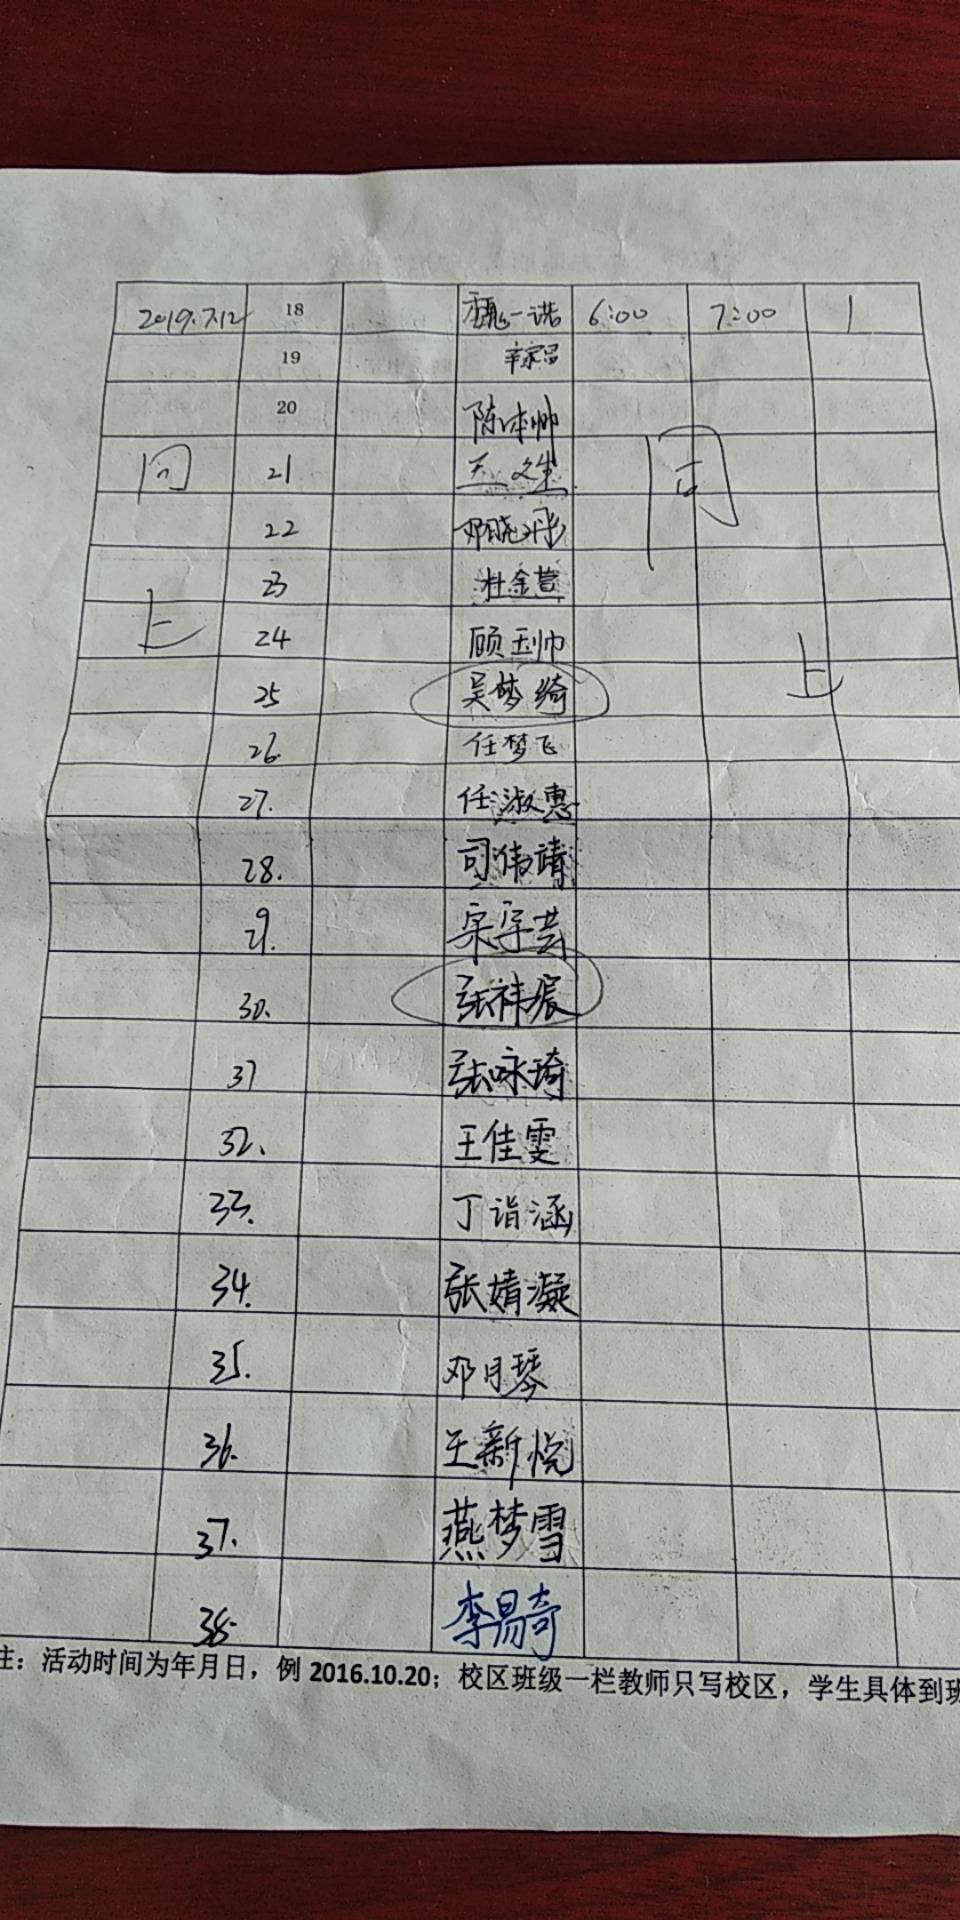 2019.7.12 18 甄一诺 6:00 7:00 1
19 辛家昌
20 陈沐帅
同 21 同
22 邓晓彤
23 杜金萱
上 24 顾玉帅
25 吴梦绮 上
26. 任梦飞
27. 任淑惠
28. 司伟靖
29. 宋宇芸
30. 张祎宸
31 张咏琦
32. 王佳雯
33. 丁诣涵
34. 张婧凝
35. 邓月琴
36. 王新悦
37. 燕梦雪
38. 李易奇
注：活动时间为年月日，例 2016.10.20；校区班级一栏教师只写校区，学生具体到班